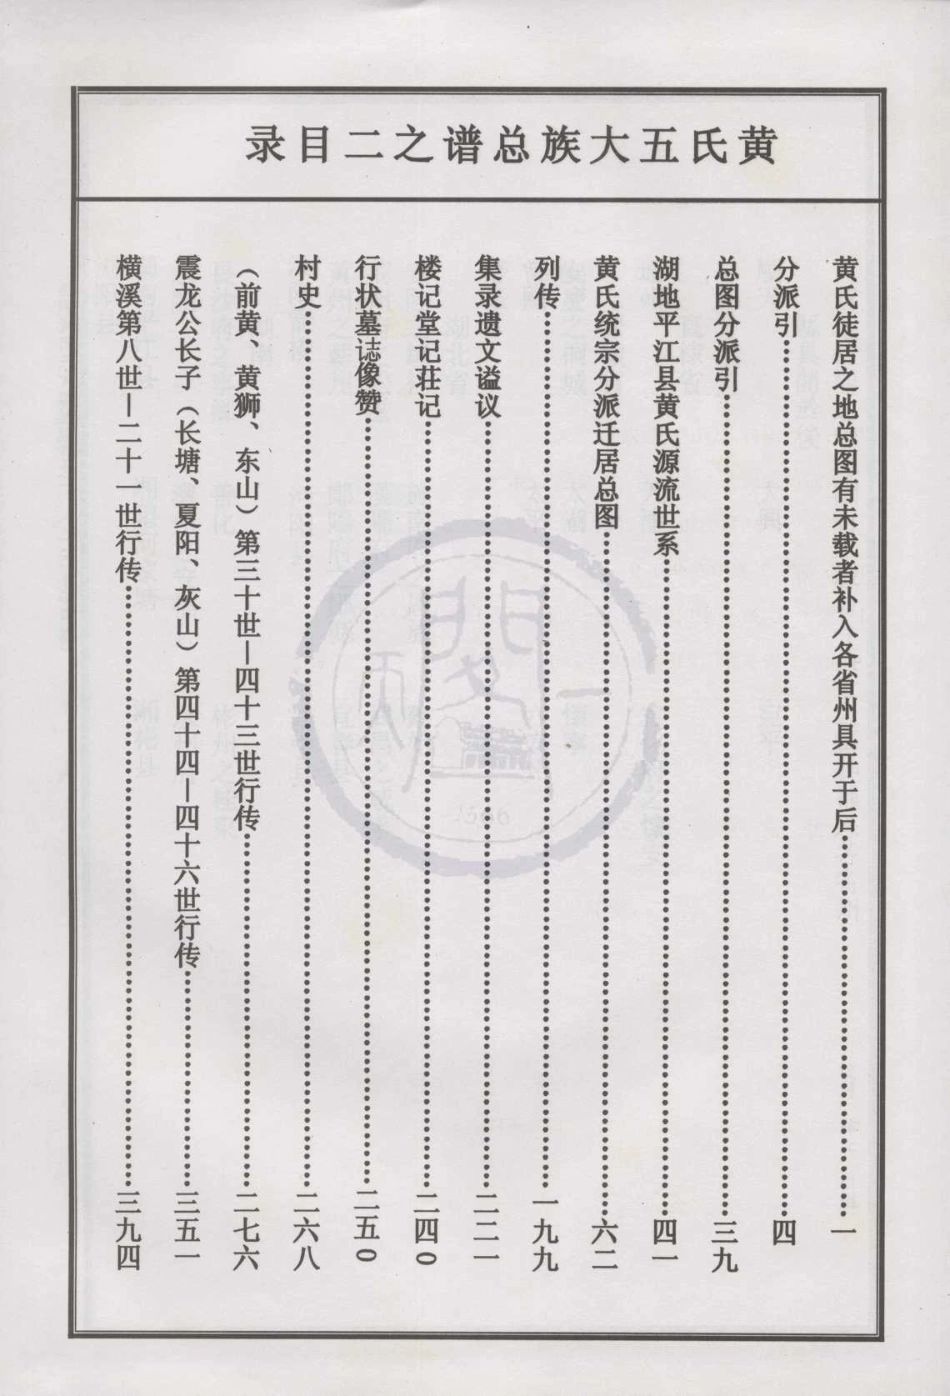 黄氏五大族总谱之二目录
黄氏徒居之地总图有未载者补入各省州具开于后……一
分派引……四
总图分派引……三九
湖地平江县黄氏源流世系……四一
黄氏统宗分派迁居总图……六二
列传……一九九
集录遗文谥议……二二一
楼记堂记莊记……二四0
行状墓誌像赞……二五0
村史……二六八
（前黄、黄狮、东山）第三十世—四十三世行传……二七六
震龙公长子（长塘、夏阳、灰山）第四十四—四十六世行传……三五一
横溪第八世—二十一世行传……三九四
1566